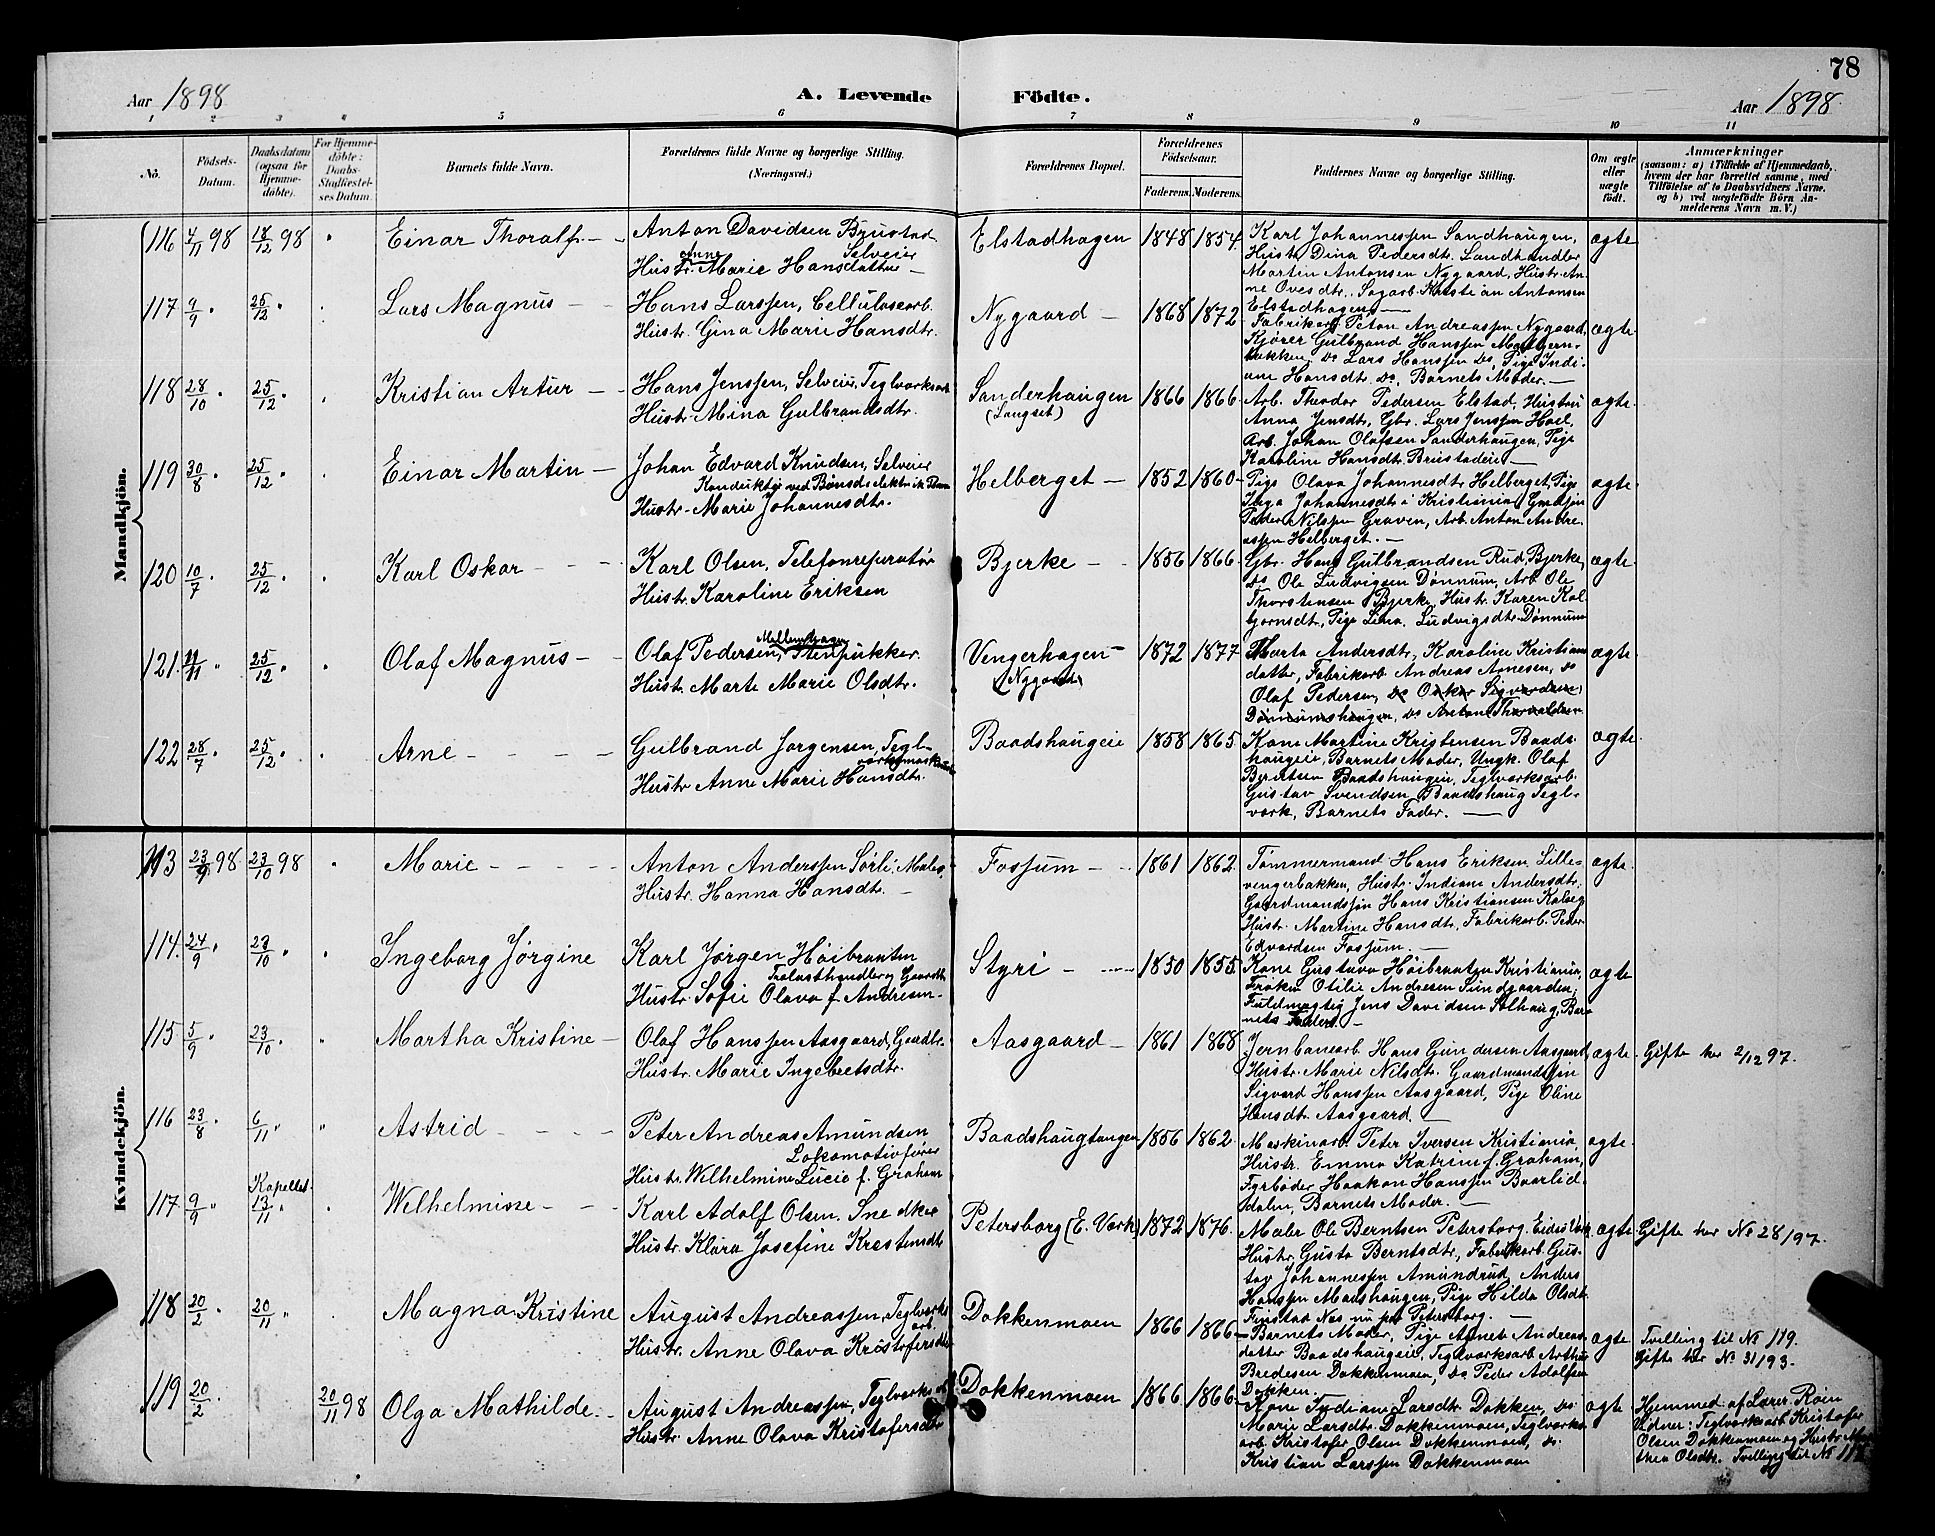 78
Aar 1898
A. Levende Födte.
Aar 1898
1 2 3 4 5 6 7 8 9 10 11
No.
Födsels-Datum.
Daabsdatum (ogsaa for Hjemmedöbte).
For Hjemmedöbte: Daabs-Stadfæstelses Datum.
Barnets fulde Navn.
Forældrenes fulde Navne og borgerlige Stilling.
(Næringsvei.)
Forældrenes Bopæl.
Forældrenes Födselsaar.
Faderens. Moderens.
Faddernes Navne og borgerlige Stilling.
Om ægte eller uægte födt.
Anmærkninger
(saasom: a) i Tilfælde af Hjemmedaab, hvem der har forrettet samme, med Tilföielse af to Daabsvidners Navne, og b) ved uægtefödte Börn Anmelderens Navn m. V.)
Mandkjön.
116 4/11 98 18/12 98 Einar Thoralf
Anton Davidsen Brustad
Selveier
Hustr. Anne Marie Hansdatter
Elstadhagen 1848 1854
Karl Johannessen Sandhaugen,
Hustr. Dina Pedersdt. Landhandler
Martin Antonsen Nygaard, Hustr. An-
ne Ovesdtr., Sagarb. Kristian Antonsen
Elstadhagen
ægte
117 9/9 25/12 Lars Magnus
Hans Larssen, Cellulosearb.
Hustr. Gina Marie Hansdtr.
Nygaard 1868 1872
Fabrikarb. Peton Andreassen Nygaard,
Kjører Gulbrand Hanssen
bakken, Do Lars Hanssen Do, Pige Indi-
ane Hansdtr. Do, Barnets Moder.
ægte
118 28/10 25/12 Kristian Artur
Hans Jenssen, Selveier, Teglværksarb
Hustr. Mina Gulbrandsdtr.
Sanderhaugen
(Langset)
1866 1866
Arb. Theodor Pedersen Elstad, Hustru
Anna Jensdtr, Gbr. Lars Jenssen Hoel,
Arb. Johan Olafsen Sanderhaugen, Pige
Karoline Hansdtr. Brustadeie
ægte
119 30/8 25/12 Einar Martin
Johan Edvard Knudsen, Selveier
Konduktør ved
Hustr. Marie Johannesdtr.
Helberget 1852 1860
Pige Olava Johannesdtr Helberget, Pige
Inga Johannesdtr i Kristiania, Grdssøn
Peder Nilssen Graven, Arb. Anton Andre-
assen Helberget.
ægte
120 10/7 25/12 Karl Oskar
Karl Olsen, Telefonreparatør
Hustr. Karoline Eriksen
Bjerke 1856 1866
Gbr. Hans Gulbrandsen Rud, Bjerke,
Do Ole Ludvigsen Dønnum, Arb. Ole
Thorstensen Bjerke, Hustr. Karen Kol-
bjørnsdtr, Pige Lina Ludvigsdtr. Dønnum
ægte
121 11/11 25/12 Olaf Magnus
Olaf Pedersen, Stenpukker.
Hustr. Marte Marie Olsdtr.
Vengerhagen
(Nygaard)
1872 1877
Marta Andersdtr, Karoline Kristians
datter, Fabrikarb Andreas Arnesen, Do
Olaf Pedersen, Do Oskar Sigvardsen
Dønnumshaugen, Do Anton Thorvaldsen
ægte
122 28/7 25/12 Arne
Gulbrand Jørgensen, Tegl-
værksmaskinist
Hustr Anne Marie Hansdtr.
Baadshaugeie 1858 1865
Kone Martine Kristensen Baads-
haugeie, Barnets Moder, Ungk. Olaf
Berntsen Baadshaugeie, Teglværksarb.
Gustav Svendsen Baadshaug Tegl-
værk, Barnets Fader.
ægte
Kvindekjön.
113 23/9 98 23/10 98 Marie
Anton Anderssen Sørli, Maler,
Hustr. Hanna Hansdtr.
Fossum 1861 1862
Tømmermand Hans Eriksen Lille-
vengerbakken, Hustr. Indiane Andersdtr,
Gaardmandssøn Hans Kristiansen
Hustr. Martine Hansdtr, Fabrikarb. Peder
Edvardsen Fossum.
ægte
114 24/9 23/10 Ingeborg Jørgine
Karl Jørgen Høibraaten
Trælasthandler og Gaardbr
Hustr. Sofie Olava f. Andresen
Styri 1850 1855
Kone Gustava Høibraaten Kristiania,
Frøken Otilie Andresen Sundgaarden,
Fuldmægtig Jens Davidsen Solhaug, Bar-
nets Fader.
ægte
115 5/9 23/10 Martha Kristine
Olaf Hanssen Aasgaard, Gaardbr.
Hustr. Marie Ingebretsdtr.
Aasgaard 1861 1868
Jernbanearb. Hans Gundersen Aasgaard,
Hustr. Marie Nilsdtr. Gaardmandssøn
Sigvard Hanssen Aasgaard, Pige Oline
Hansdtr. Aasgaard
ægte
Gifte her 2/12 97.
116 23/8 6/11 Astrid
Peter Andreas Amundsen
Lokomotivfører
Hustr. Wilhelmine Lucie f. Graham
Baadshaugtangen 1856 1862
Maskinarb. Peter Iversen Kristiania
Hustr. Emma Katrine f. Graham,
Fyrbøder Haakon Hanssen Baarlid-
dalen, Barnets Moder.
ægte
117 9/9 Kapellet 13/11 Welhelmine
Karl Adolf Olsen, Snedker
Hustr. Klara Josefine Kristensdtr
Petersborg (E. Værk) 1872 1876
Maler Ole Berntsen Petersborg Eidsv. Værk,
Hustr. Gusta Berntsdtr, Fabrikarb. Gus-
tav Johannessen Amundrud, Anders
Hanssen Maashaugen, Pige Hilda Olsdtr.
Finstad Næs nu paa Petersborg.
ægte
Gifte her No 28/97.
118 20/2 20/11 Magna Kristine
August Andreassen, Teglværks
arb.
Hustr. Anne Olava Kristofersdtr
Dokkenmoen 1866 1866
Barnets Moder, Pige Agnet Andreas-
datter Baadshaugeie, Teglværksarb Arthur
Bredesen Dokkenmoen, Do Peder Adolfsen
Dokken.
ægte
Tvilling til No 119.
Gifte her No 31/93.
119 20/2 20/11 98 Olga Mathilde
August Andreassen, Teglværksarb
Hustr. Anne Olava Kristofersdtr
Dokkenmoen 1866 1866
Kone Indiane Larsdtr Dokken, Do
Marie Larsdtr. Dokkenmoen, Teglværks
arb. Kristofer Olsen Dokkenmoen, Do
Kristian Larssen Dokkenmoen
ægte
Hjemmed. af Lærer Røen
Vidner: Teglværksarb Kristofer
Olsen Dokkenmoen og Hustr. Ma
thea Olsdtr. Tvilling til No 118